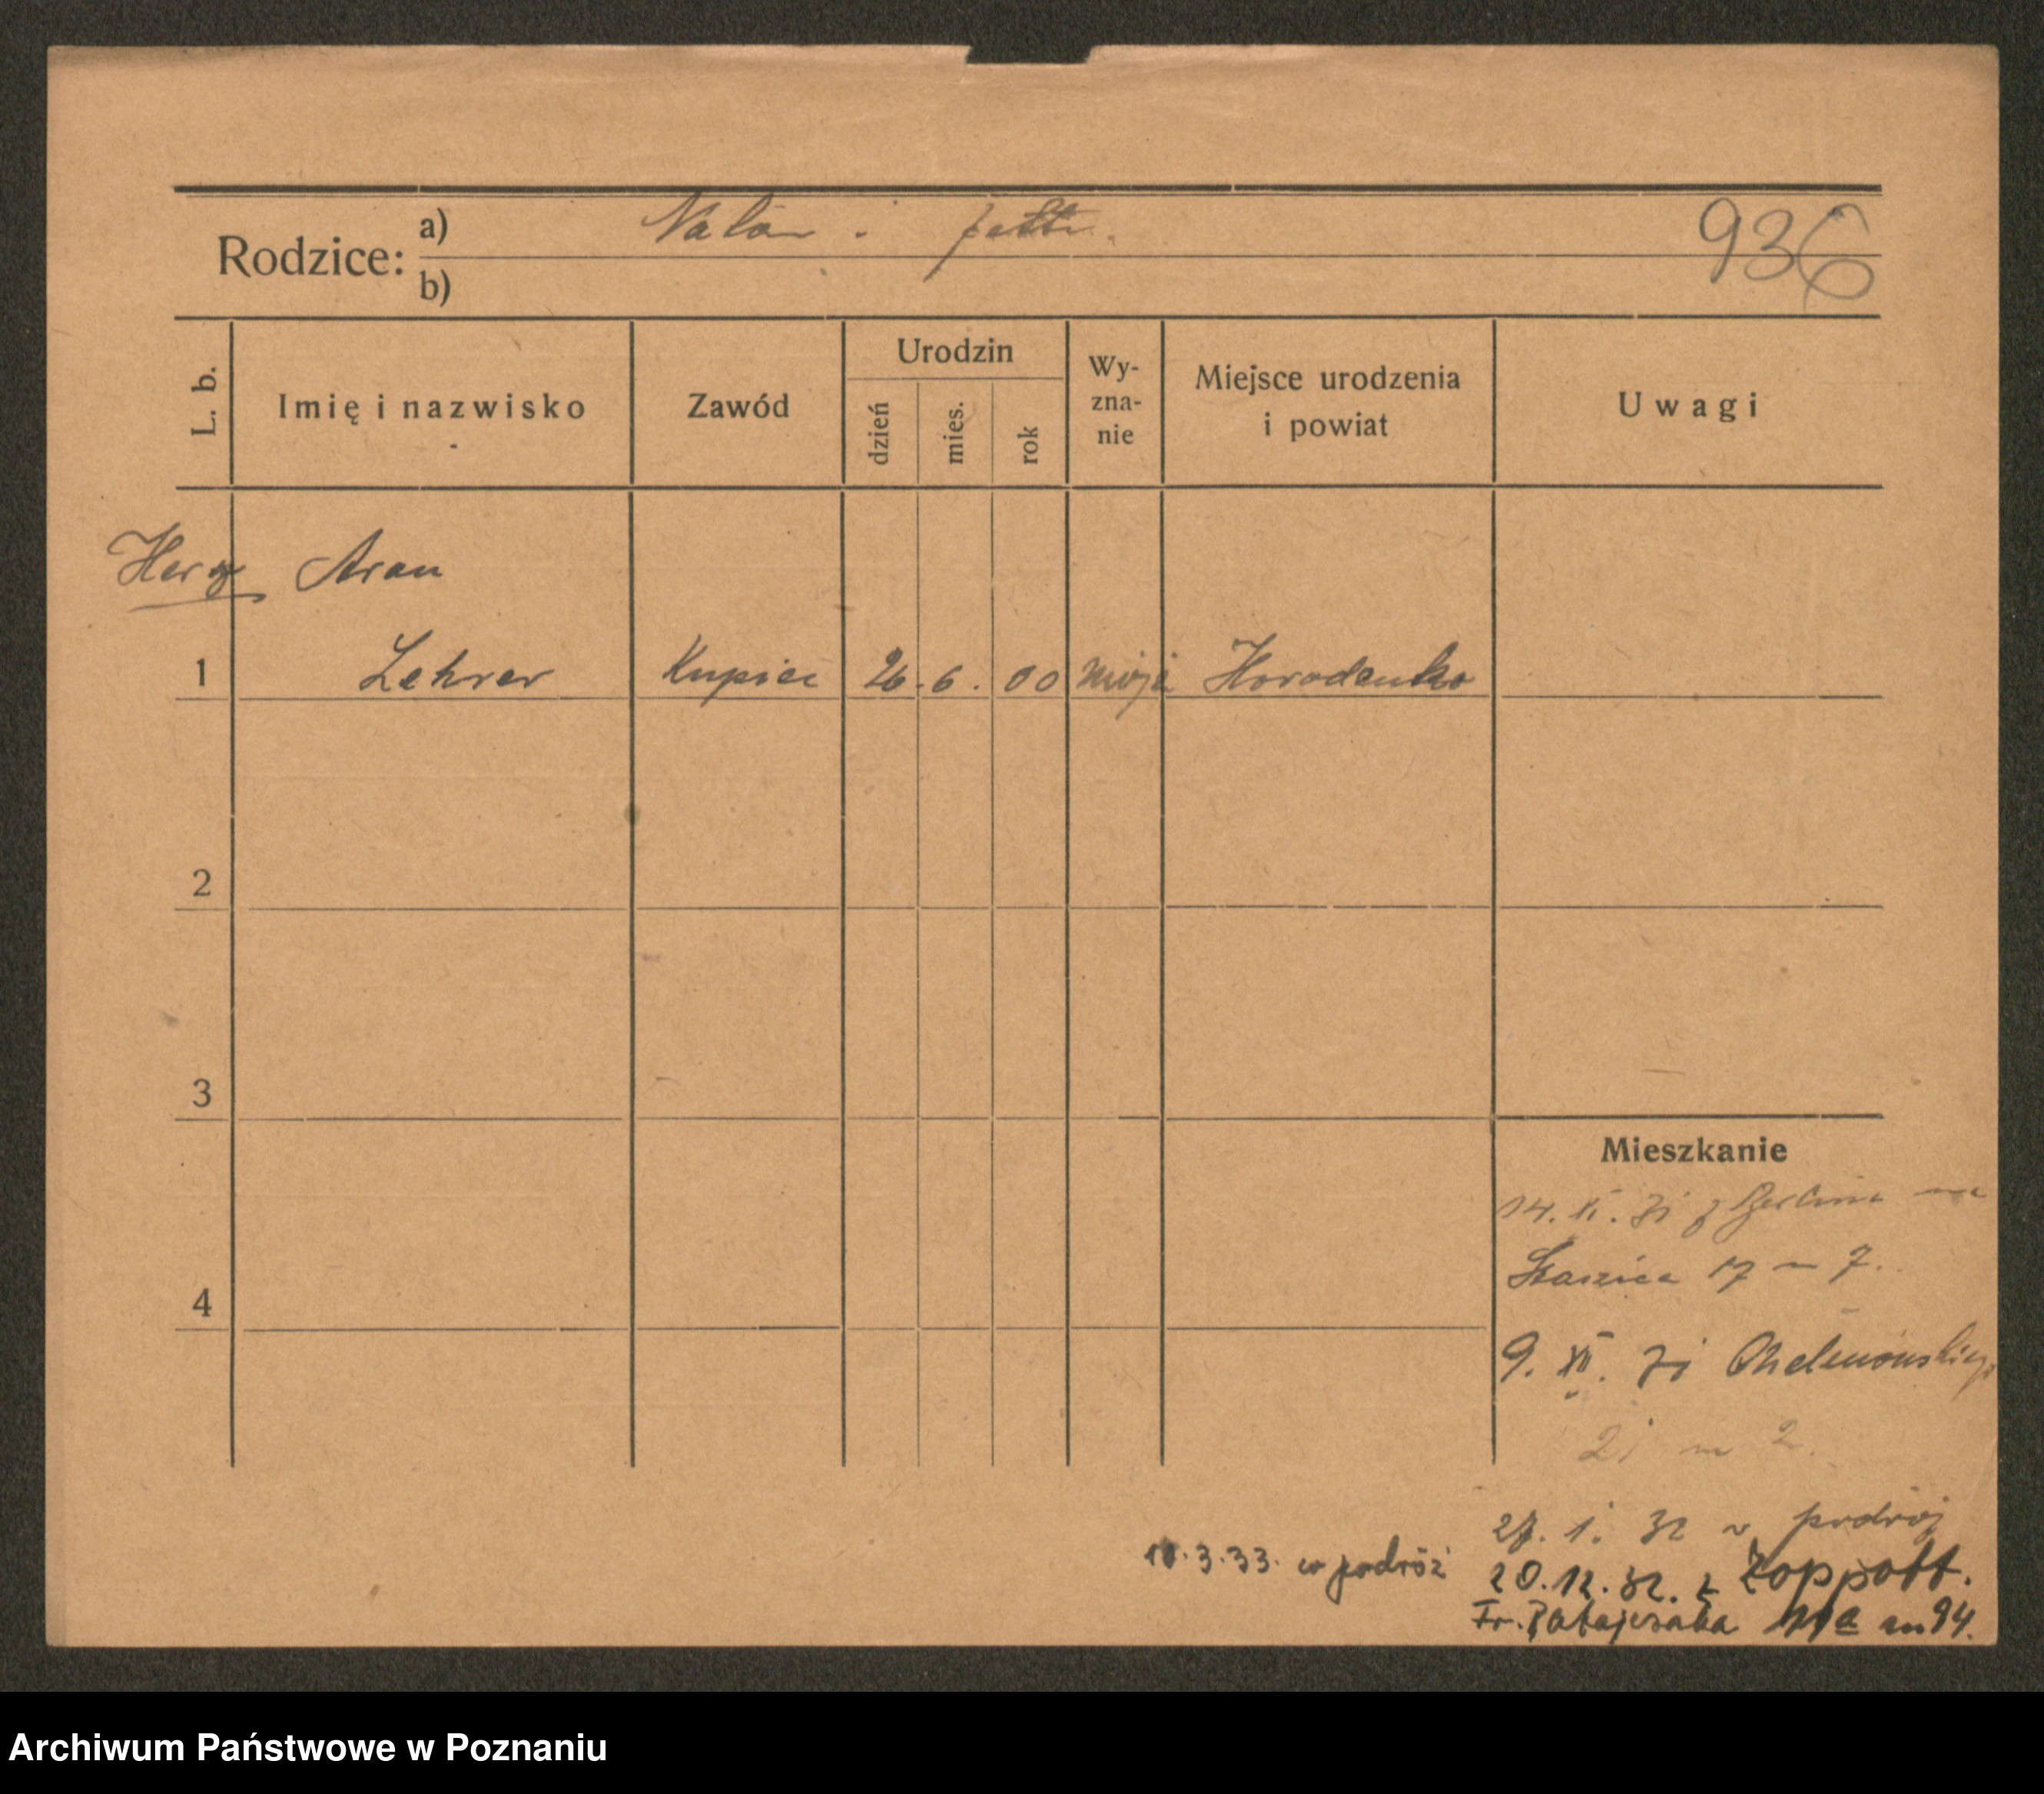 Rodzice: a) Natan i
b)
936
L. b.
Imię i nazwisko
Zawód
Urodzin
dzień
mies.
rok
Wy-
zna-
nie
Miejsce urodzenia
i powiat
Uwagi
Herz Aron
1 Lehrer Kupiec 26. 6. 00 mojż Horodenko
2
3
Mieszkanie
14. XI. 31 z Berlina na
Staszica 17 m 7.
4
9. XII. 31 Chełmońskiego
21 m 2.
27. 1. 32 w podróż
11.3.33. w podróż
20.12.32. z Zoppott.
Fr. Ratajczaka 11a m 94.
Archiwum Państwowe w Poznaniu